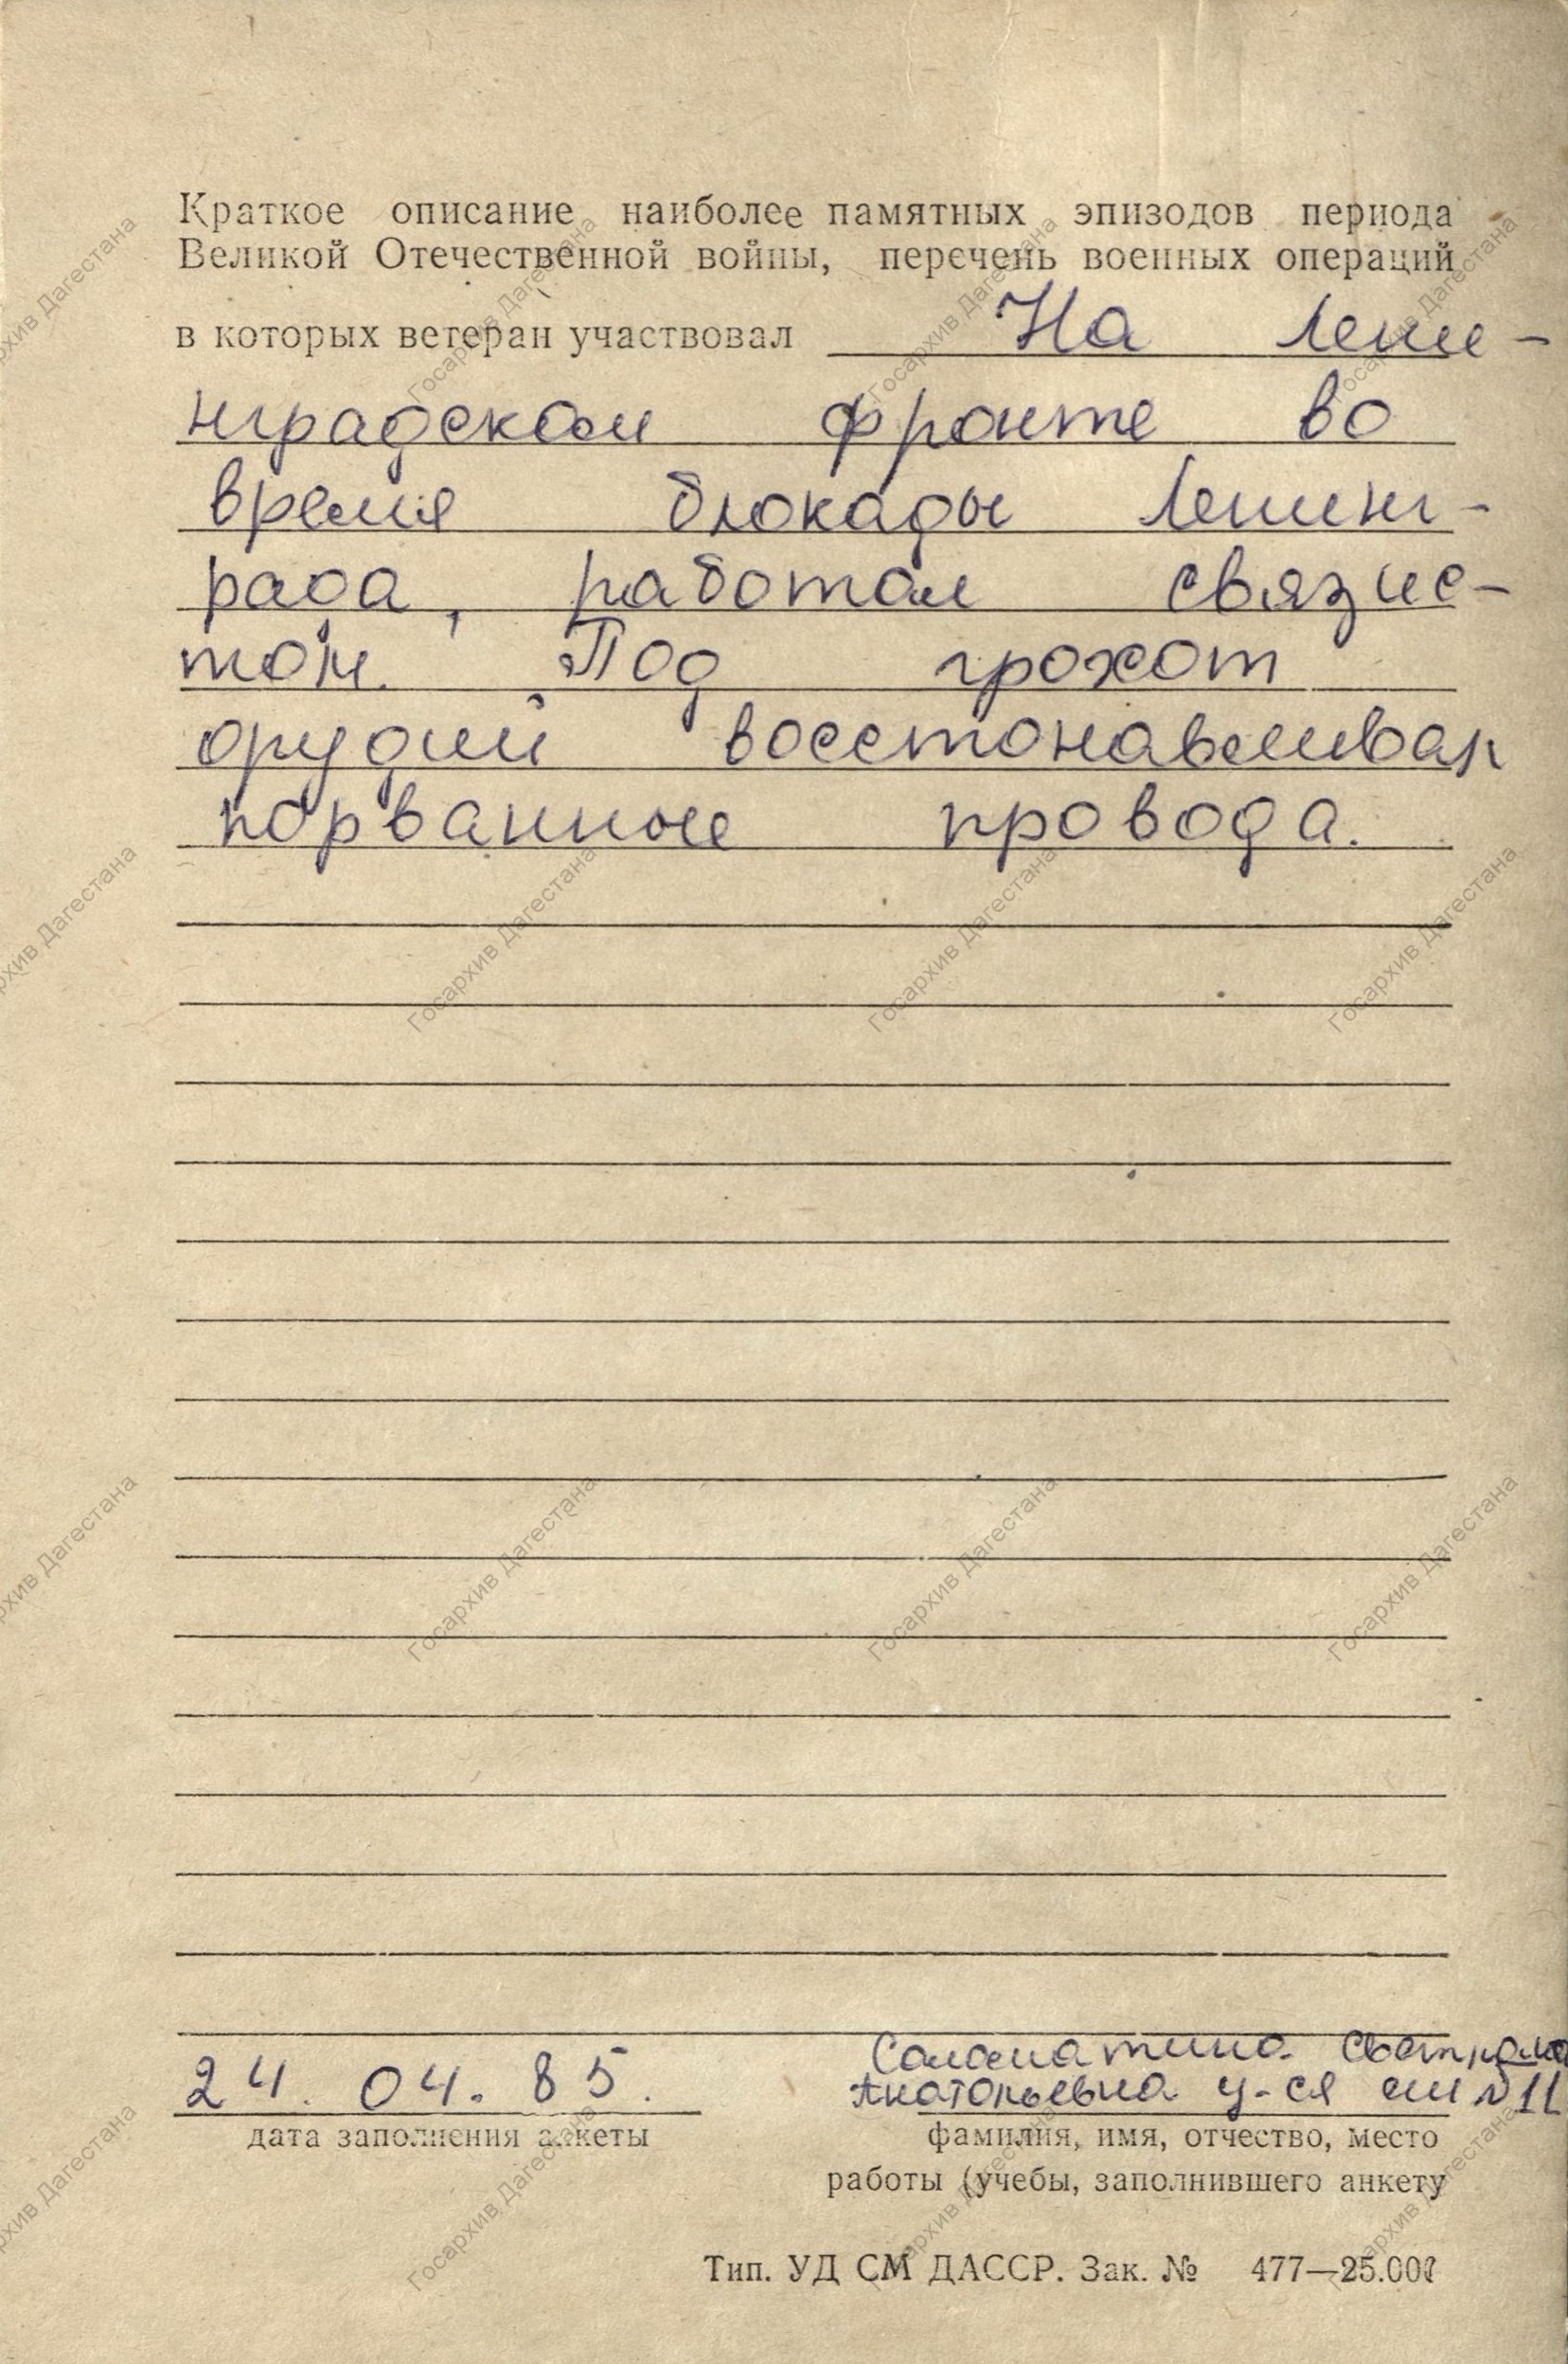 Краткое описание наиболее памятных эпизодов периода
Великой Отечественной войны, перечень военных операций
в которых ветеран участвовал На Лени-
нградском фронте во
время блокады Ленинг-
рада, работал связис-
том. Под грохот
орудий восстонавливал
порванные провода.
24. 04. 85.
Саламатина Светлана
Анатольевна у-ся сш №11
дата заполнения анкеты
фамилия, имя, отчество, место
работы (учебы, заполнившего анкету
Тип. УД СМ ДАССР. Зак. № 477—25.000
Госархив Дагестана